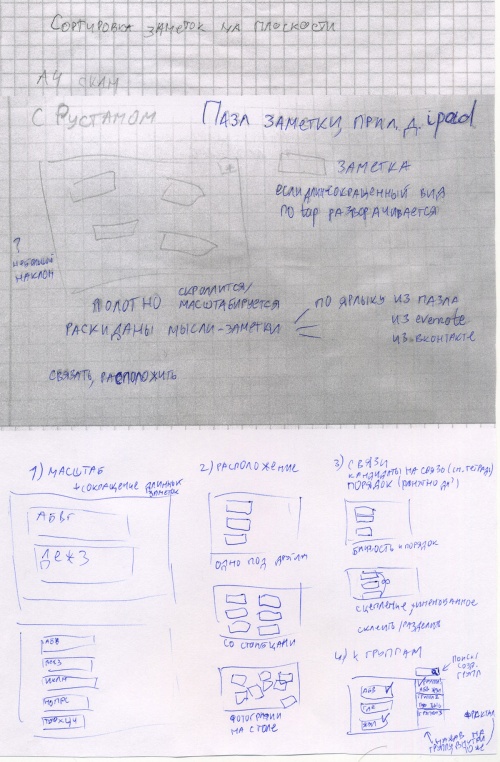 Сортировка заметок на плоскости
А4 скан
С Рустамом
Пазл заметки, прил. д. ipad
заметка
если длин → сокращенный вид
по tap разворачивается
?
небольшой
наклон
полотно скроллится/
масштабируется
раскиданы мысли-заметки
по ярлыку из пазла
из evernote
из вконтакте
связать, расположить
1) масштаб
+ сокращение длинных
заметок
АБВГ
ДЕЖЗ
АБВ
ИКЛМ
2) расположение
одно под другим
со столбцами
фотографии
на столе
3) связи
кандидаты на связь (см. тетрадь)
порядок
близость и порядок
сцепление, именованное
склеить/разделив
4) к группам
поиск/
созд.
групп
АБВ
нажав на
группу,